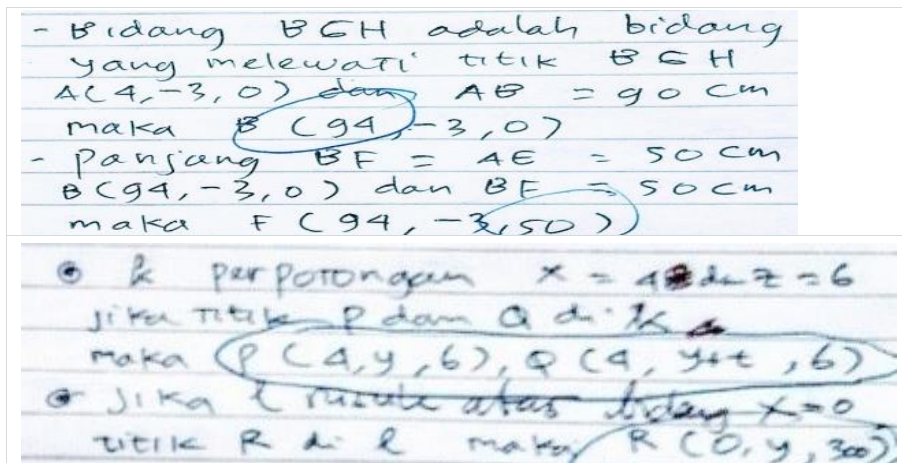 - Bidang BGH adalah bidang
yang melewati titik BGH
A(4,-3,0) dan AB = 90 cm
maka B (94,-3,0)
- panjang BF = AE = 50 cm
B(94,-3,0) dan BF = 50 cm
maka F (94,-3,50)
k perpotongan x = 4 dan z = 6
jika titik P dan Q di k
maka P(4,y,6), Q(4, y+t,6)
jika l rusuk atas bidang x=0
titik R di l maka R(0,y,300)